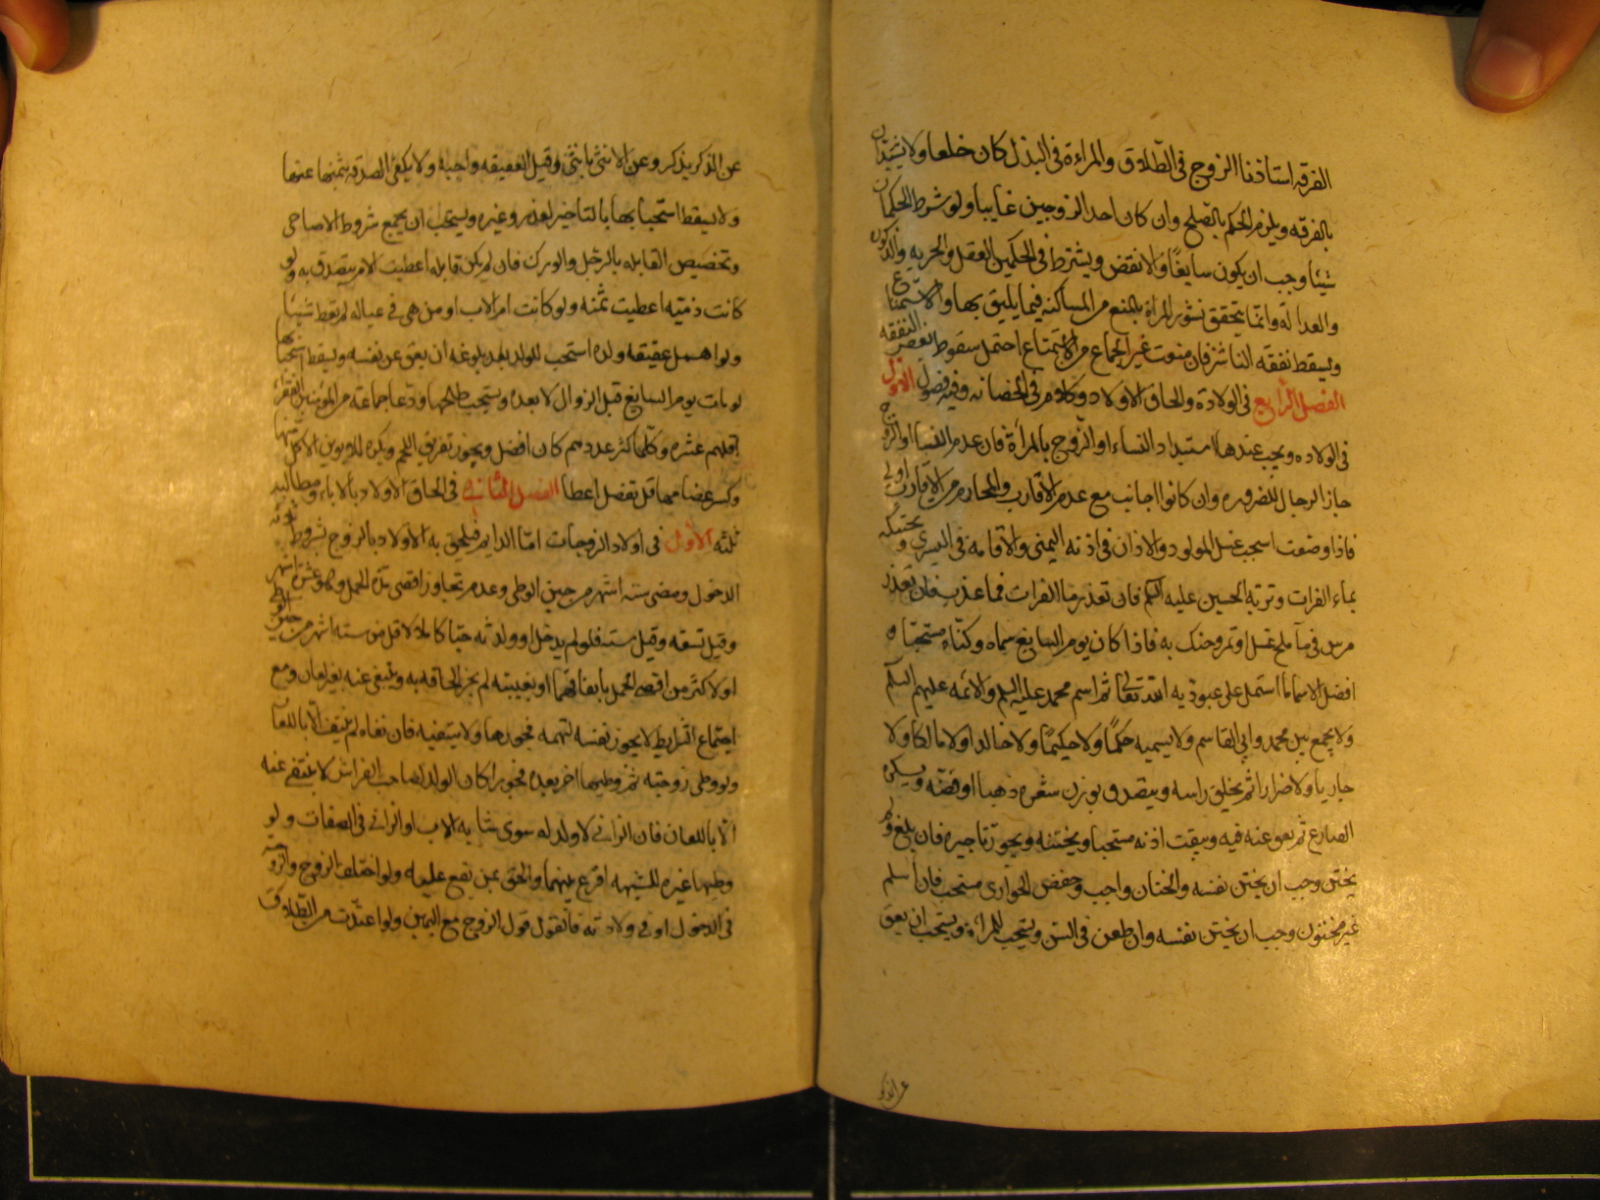 الفرقه استاذنا الزوج فى الطلاق والمراءة فى البذل كان خلعا ولا يشتدان
بالفرقه ويلزم الحكم بالصلح وان كان احد الزوجين غايبا ولو شرط الحكمان
شيئا وجب ان يكون سايغا والا نقض ويشترط فى الحكمين العقل والحريه والذكوره
والعدالة وانما يتحقق نشوز المراة بالمنع من المساكنه فيما يليق بها والاستمتاع
ويسقط نفقه الناشز فان منعت غير الجماع من الاستمتاع احتمل سقوط بعض النفقه
الفصل الرابع فى الولادة والحاق الاولاد وكلام فى الحضانه وفيه فصول الاول
فى الولاده ويجب عندها استبداد النساء او الزوج بالمراة فان عدم النسا او الزوج
جاز الرجال للضروره وان كانوا اجانب مع عدم الاقارب والمحارم من الاقارب اولى
فاذا وضعت استحب غسل المولود والاذان فى اذنه اليمنى والاقامه فى اليسرى وتحنيكه
بماء الفرات وتربة الحسين عليه السلم فان تعذر ماء الفرات فماء عذب فان تعذر
مرس فى ماء ملح عسل او تمر وحنك به فاذا كان يوم السابع سماه وكناه مستحبا و
افضل الاسما ما اشتمل على عبوديه الله تعالى ثم اسم محمد عليه السلم والائمه عليهم السلم
ولا يجمع بين محمد وابى القاسم ولا يسميه حكما ولا حكيما ولا خالدا ولا مالكا ولا
حاربا ولا ضرارا ثم يحلق راسه ويتصدق بوزن شعره ذهبا او فضه ويكره
القنازع ثم يعق عنه فيه ويثقب اذنه مستحبا ويختنه ويجوز تاخيره فان بلغ ولم
يختتن وجب ان يختن نفسه والختان واجب وخفض الجوارى مستحب فان اسلم
غير مختون وجب ان يختن نفسه وان طعن فى السن ويستحب للمراة ويستحب ان يعق
عن الذكر
عن الذكر بذكر وعن الانثى بانثى وقيل العقيقه واجبه ولا يكفى الصدقه بثمنها عنها
ولا يسقط استحبابها بالتاخير لعذر وغيره ويستحب ان يجمع شروط الاضاحى
وتخصيص القابله بالرجل والورك فان لم يكن قابله اعطيت الام يتصدق به ولو
كانت ذميه اعطيت ثمنه ولو كانت ام الاب او من هى فى عياله لم تعط شيئا
ولو اهمل عقيقه ولده استحب للولد بعد بلوغه ان يعق عن نفسه ويسقط استحبابها
لو مات يوم السابع قبل الزوال لا بعده ويستحب طبخها ودعا جماعه من المؤمنين الفقراء
اقلهم عشره وكلما كثر عددهم كان افضل ويجوز تفريق اللحم ويكره للابوين الاكل منها
وكسر عظامها بل تفصل اعضا الفصل الثانى فى الحاق الاولاد بالاباء ومطالبه
ثلثه الاول فى اولاد الزوجات اما الدايم فيلحق به الاولاد بالزوج بشروط ثلثه
الدخول ومضى سته اشهر من حين الوطى وعدم تجاوز اقصى مدة الحمل وهو عشرة اشهر
وقيل تسعه وقيل سنه فلو لم يدخل او ولدته حيا كاملا لاقل من سته اشهر من حين الوطى
او لاكثر من اقصى الحمل باتفاقهما او بغيبته لم يجز الحاقه به وينتفى عنه بغير لعان ومع
اجتماع الشرايط لا يجوز نفيه لتهمه فجورها ولا ينتفيه فان نفاه لم ينتف الا باللعان
ولو وطى زوجته ثم وطيها اخر بعده فجورا كان الولد لصاحب الفراش لا ينتفى عنه
الا باللعان فان الزانى لا ولد له سوى شابه الاب او الزانى فى الصفات ولو
وطيها غيره للشبهه اقرع بينهما والحق بمن تقع عليه ولو اختلف الزوج والزوجه
فى الدخول او فى ولادته فالقول قول الزوج مع اليمين ولو اعتدت من الطلاق